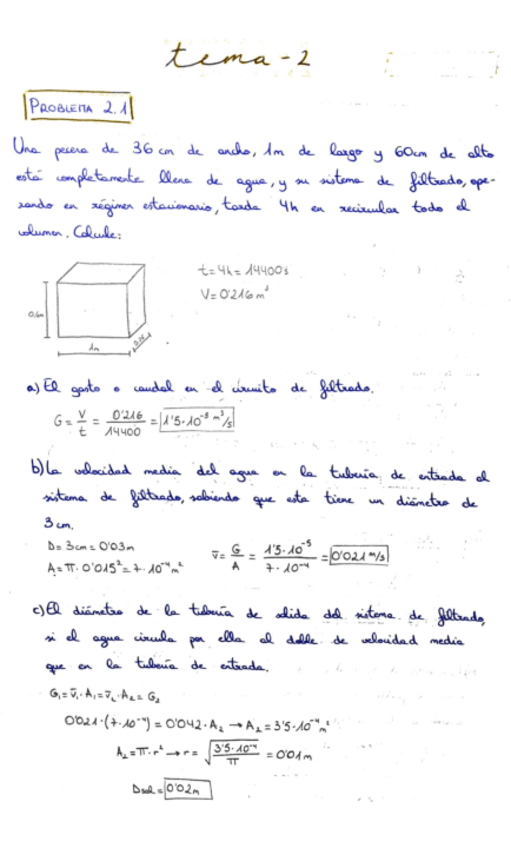 tema-2
PROBLEMA 2.1
Una pecera de 36 cm de ancho, 1m de largo y 60cm de alto
está completamente llena de agua, y su sistema de filtrado, ope-
rando en régimen estacionario, tarda 4h en recircular todo el
volumen. Calcule:
t=4h=14400s
V=0'216m³
0,6m
1m
0,36
a) El gasto o caudal en el circuito de filtrado.
G = V/t = 0'216/14400 = 1'5·10⁻⁵ m³/s
b) La velocidad media del agua en la tubería de entrada al
sistema de filtrado, sabiendo que esta tiene un diámetro de
3 cm.
D= 3cm = 0'03m
A = π·0'015² = 7·10⁻⁴ m²
v̄ = G/A = 1'5·10⁻⁵/7·10⁻⁴ = 0'021 m/s
c) El diámetro de la tubería de salida del sistema de filtrado,
si el agua circula por ella al doble de velocidad media
que en la tubería de entrada.
G₁ = v̄₁·A₁ = v̄₂·A₂ = G₂
0'021·(7·10⁻⁴) = 0'042·A₂ → A₂ = 3'5·10⁻⁴ m²
A₂ = π·r² → r = √(3'5·10⁻⁴/π) = 0'01m
Dsal = 0'02m